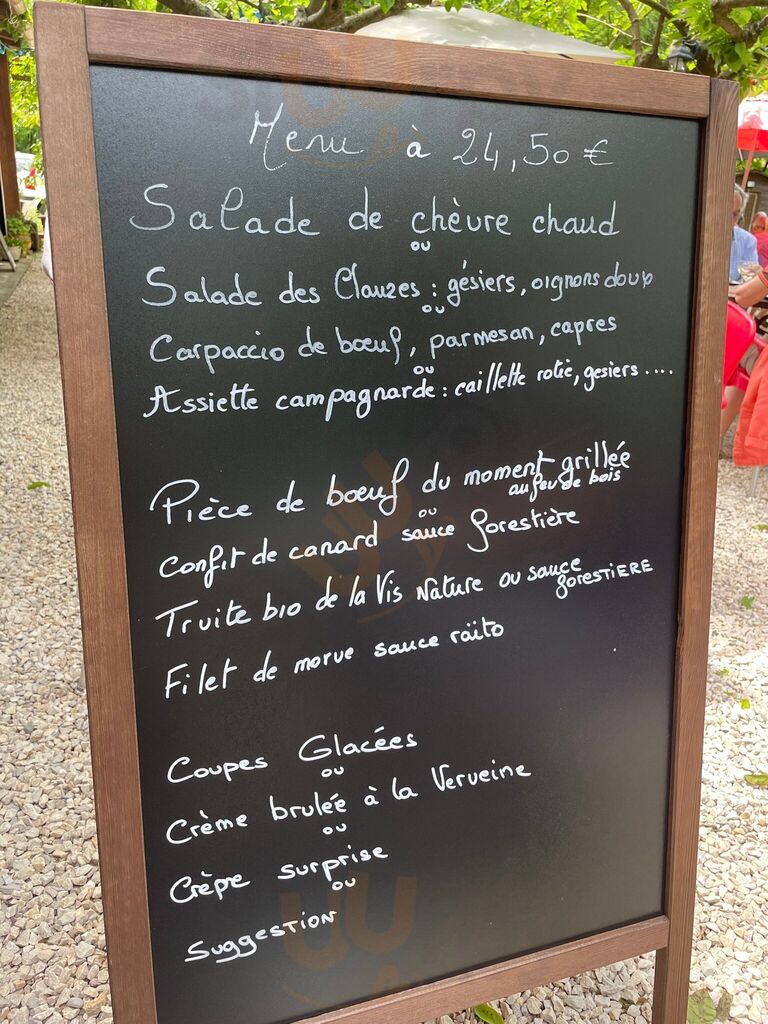 Menu à 24,50 €
Salade de chèvre chaud
ou
Salade des Clauzes : gésiers, oignons doux
ou
Carpaccio de bœuf, parmesan, capres
ou
Assiette campagnarde : caillette rotie, gesiers ....
Pièce de bœuf du moment grillée
au feu de bois
ou
Confit de canard sauce forestière
Truite bio de la Vis Nature ou sauce
forestiere
Filet de morue sauce raïto
Coupes Glacées
ou
Crème brulée à la Verveine
ou
Crèpe surprise
ou
Suggestion